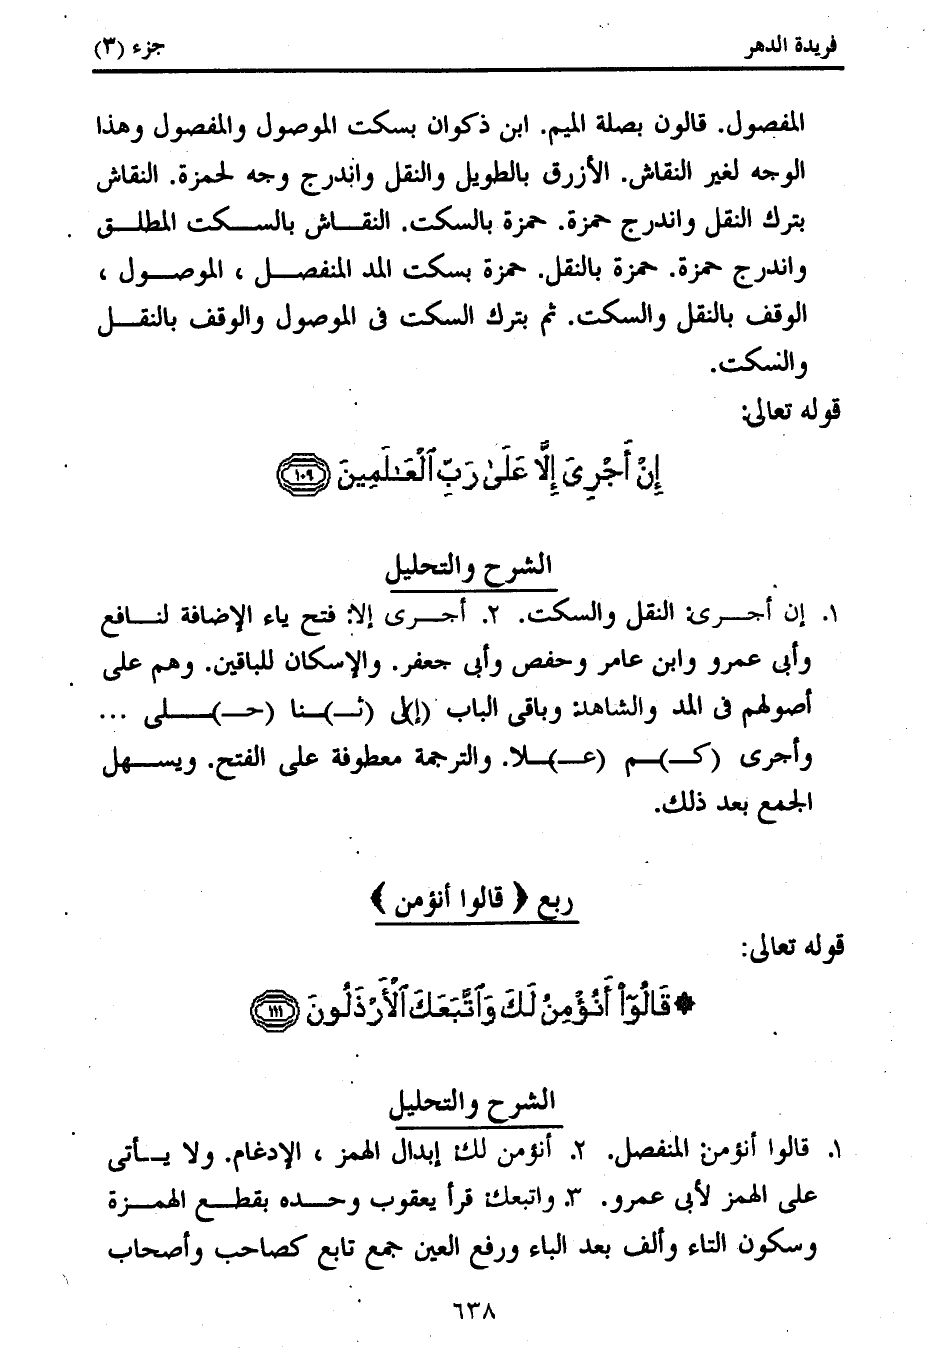 فريدة الدهر
جزء (٣)
المفصول. قالون بصلة الميم. ابن ذكوان بسكت الموصول والمفصول وهذا
الوجه لغير النقاش. الأزرق بالطويل والنقل واندرج وجه لحمزة. النقاش
بترك النقل واندرج حمزة. حمزة بالسكت. النقاش بالسكت المطلق
واندرج حمزة. حمزة بالنقل. حمزة بسكت المد المنفصل ، الموصول ،
الوقف بالنقل والسكت. ثم بترك السكت فى الموصول والوقف بالنقل
والسكت.
قوله تعالى:
إِنْ أَجْرِىَ إِلَّا عَلَىٰ رَبِّ ٱلْعَـٰلَمِينَ ١٠٩
الشرح والتحليل
١. إن أجرى: النقل والسكت. ٢. أجرى إلا: فتح ياء الإضافة لنافع
وأبى عمرو وابن عامر وحفص وأبى جعفر. والإسكان للباقين. وهم على
أصولهم فى المد والشاهد: وباقى الباب (إ)لى (ثـ)ـنا (حـ)ـلى ...
وأجرى (كـ)ـم (عـ)ـلا. والترجمة معطوفة على الفتح. ويسهل
الجمع بعد ذلك.
ربع ﴿ قالوا أنؤمن ﴾
قوله تعالى:
* قَالُوٓا۟ أَنُؤْمِنُ لَكَ وَٱتَّبَعَكَ ٱلْأَرْذَلُونَ ١١١
الشرح والتحليل
١. قالوا أنؤمن: المنفصل. ٢. أنؤمن لك: إبدال الهمز ، الإدغام. ولا يأتى
على الهمز لأبى عمرو. ٣. واتبعك: قرأ يعقوب وحده بقطع الهمزة
وسكون التاء وألف بعد الباء ورفع العين جمع تابع كصاحب وأصحاب
٦٣٨